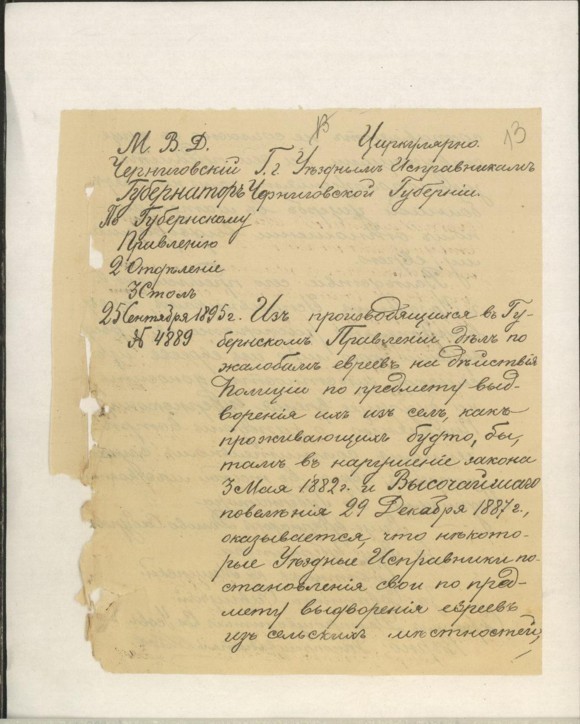 13
13
М. В. Д. Циркулярно.
Черниговскій Г.г Уѣзднымъ Исправникамъ
Губернаторъ Черниговской Губерніи.
По Губернскому
Правленію
2 Отдѣленіе
3 Столъ
25 Сентября 1895 г. Изъ производящихся въ Гу-
№ 4889 бернскомъ Правленіи дѣлъ по
жалобамъ евреевъ на дѣйствія
Полиціи по предмету выд-
воренія ихъ изъ селъ, какъ
проживающихъ будто, бы,
тамъ въ нарушеніе закона
3 Мая 1882 г. и Высочайшаго
повелѣнія 29 Декабря 1887 г.,
оказывается, что нѣкото-
рые Уѣздные Исправники по-
становленія свои по пред-
мету выдворенія евреевъ
изъ сельскихъ мѣстностей,